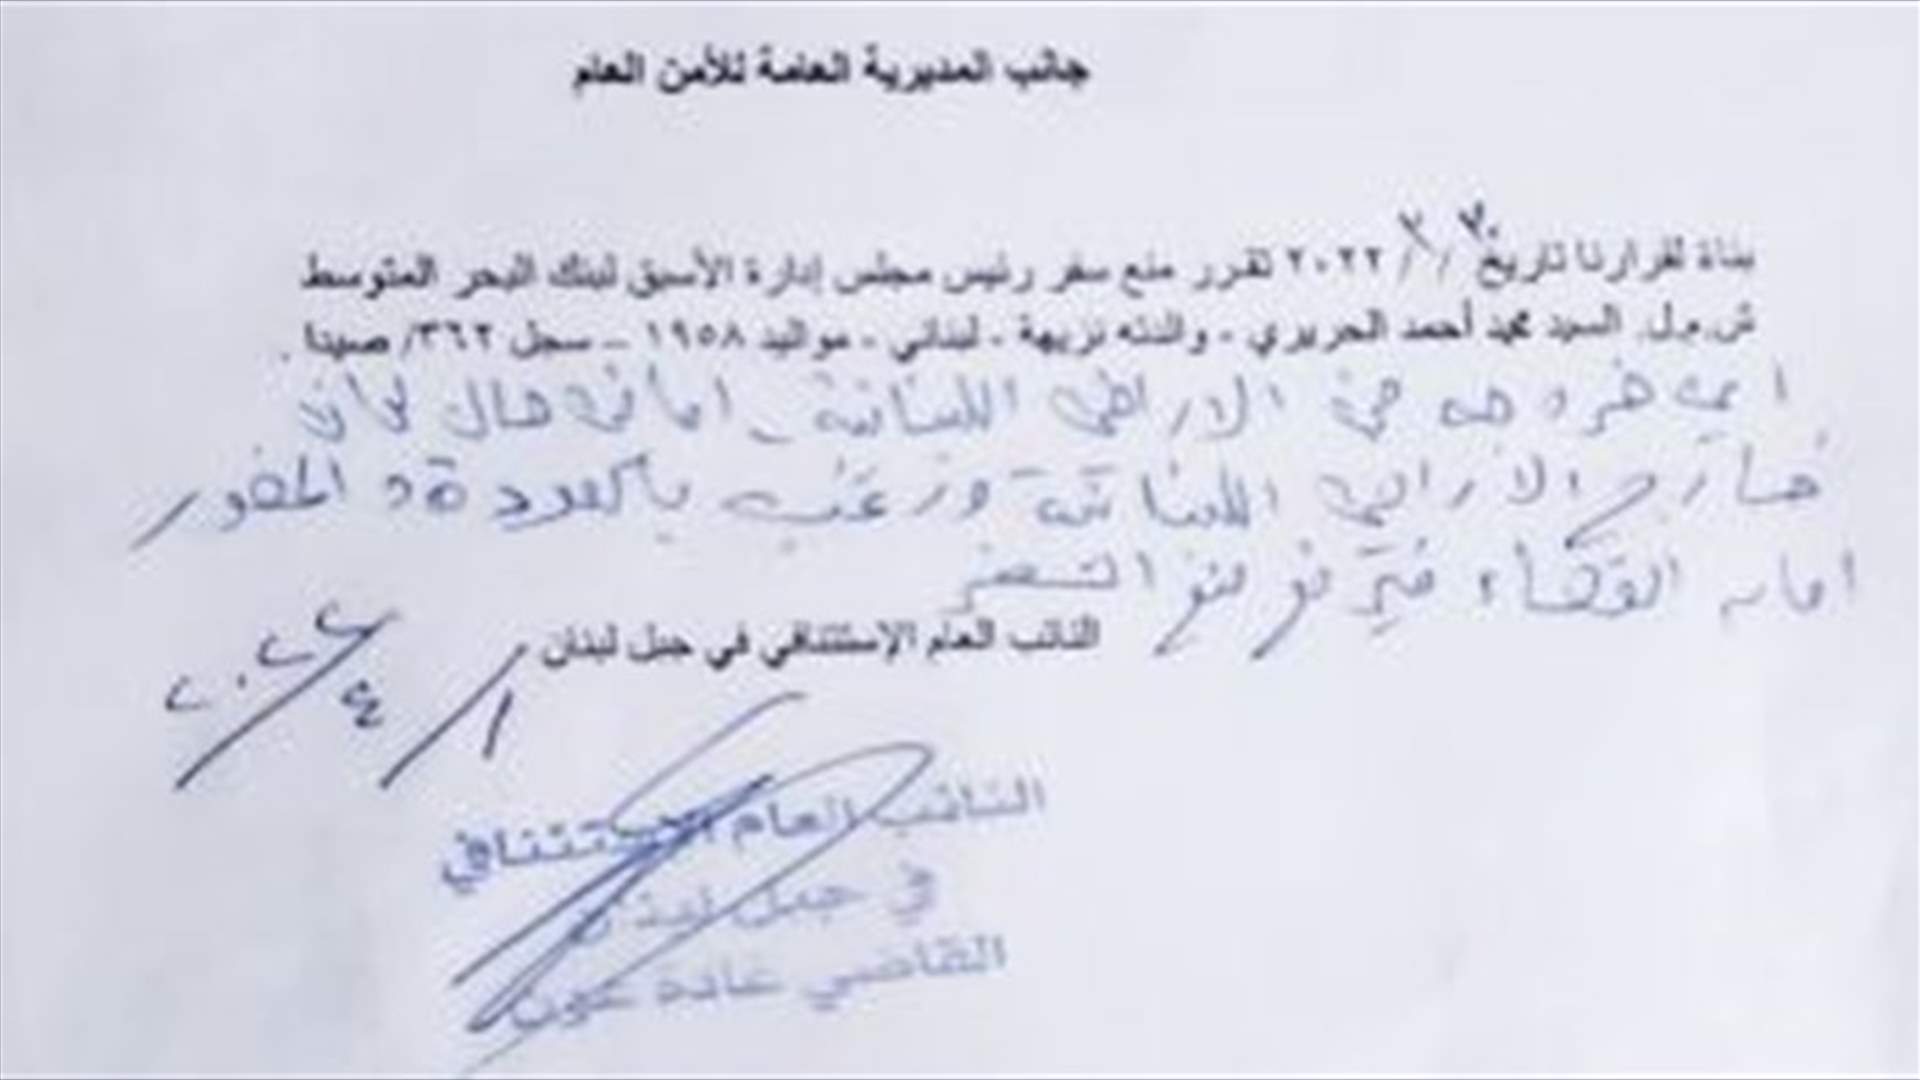 جانب المديرية العامة للأمن العام
بناءً لقرارنا تاريخ ٣٠/٣/٢٠٢٢ تقرر منع سفر رئيس مجلس إدارة الأسبق لبنك البحر المتوسط
ش.م.ل. السيد محمد أحمد الحريري - والدته نزيهة - لبناني - مواليد ١٩٥٨ - سجل ٣٦٢/ صيدا .
اي خروجه من الاراضي اللبنانية - اما في حال كان
خارج الاراضي اللبنانية ورغب بالعودة الحضور
امام القضاء
النائب العام الإستئنافي في جبل لبنان
٢٠٢٢/٤/١
النائب العام الاستئنافي
في جبل لبنان
القاضي غادة عون